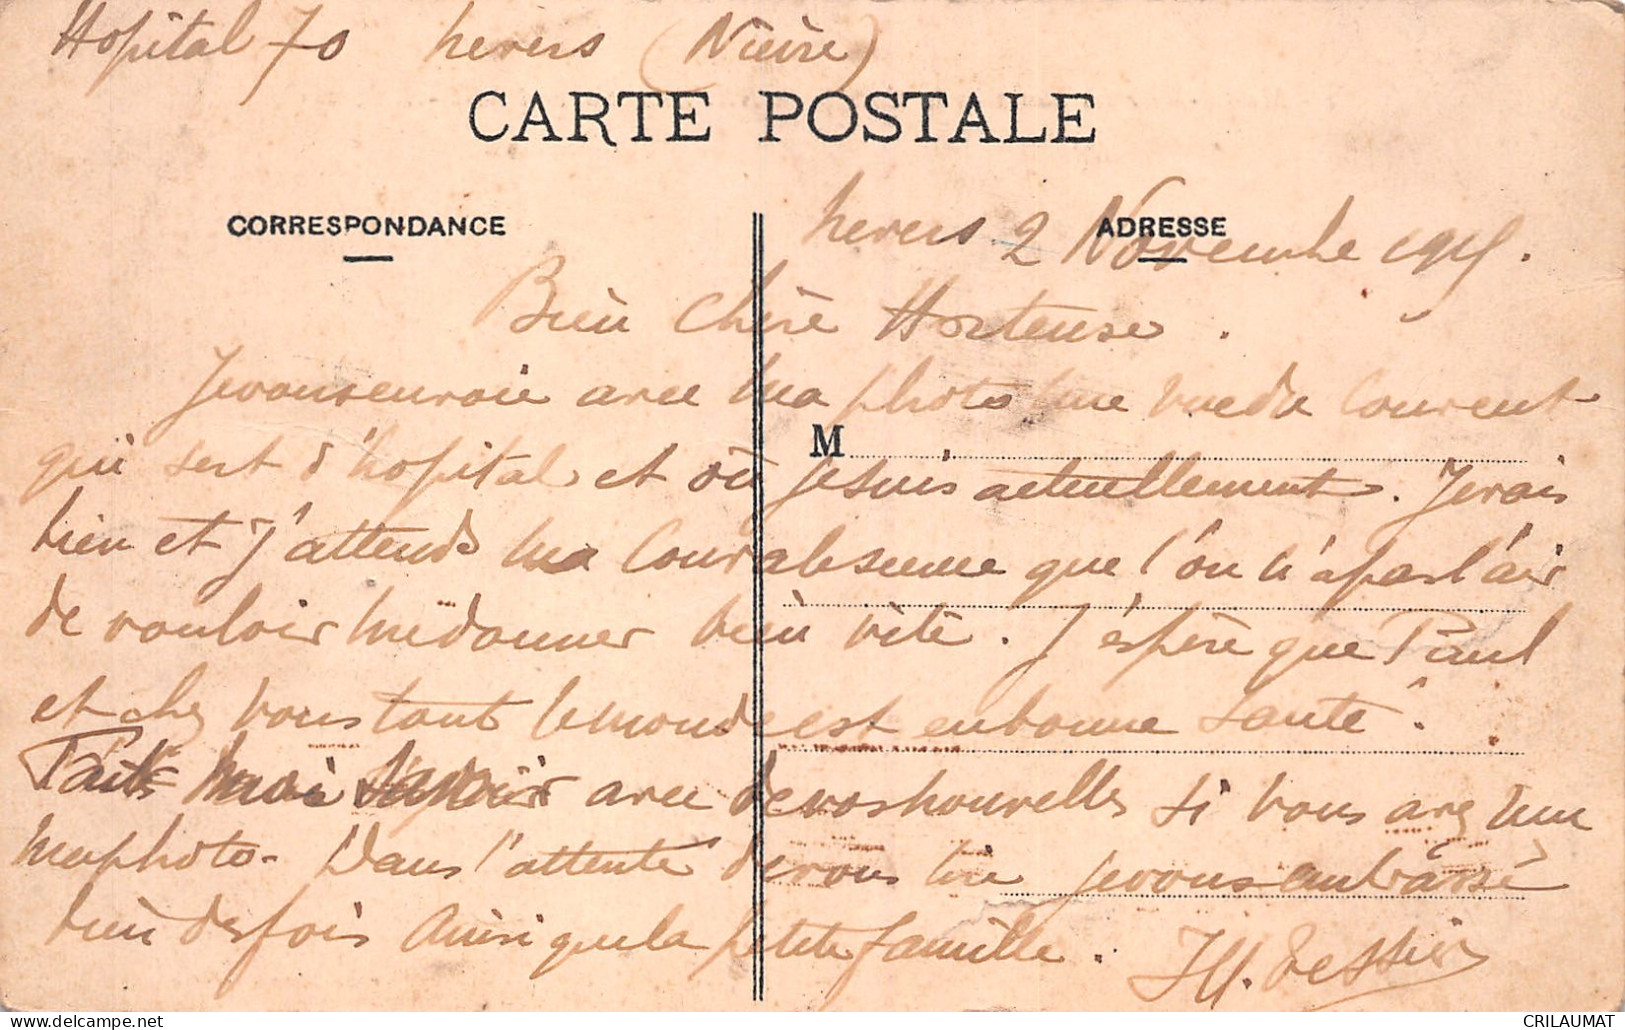 Hopital 70 nevers (Nièvre)
CARTE POSTALE
CORRESPONDANCE
ADRESSE
nevers 2 Novembre 1915.
Bien chère Hortense.
Je vous envoie avec ma photo une vue du couvent
M
qui sert d'hopital et où je suis actuellement. Je vais
bien et j'attends ma convalescence que l'on n'a pas l'air
de vouloir me donner bien vite. J'espère que Paul
et chez vous tout le monde est en bonne santé.
Faites moi savoir avec de vos nouvelles si vous avez eu
ma photo. Dans l'attente de vous lire je vous embrasse
bien des fois ainsi que la petite famille. Tessier
CRILAUMAT